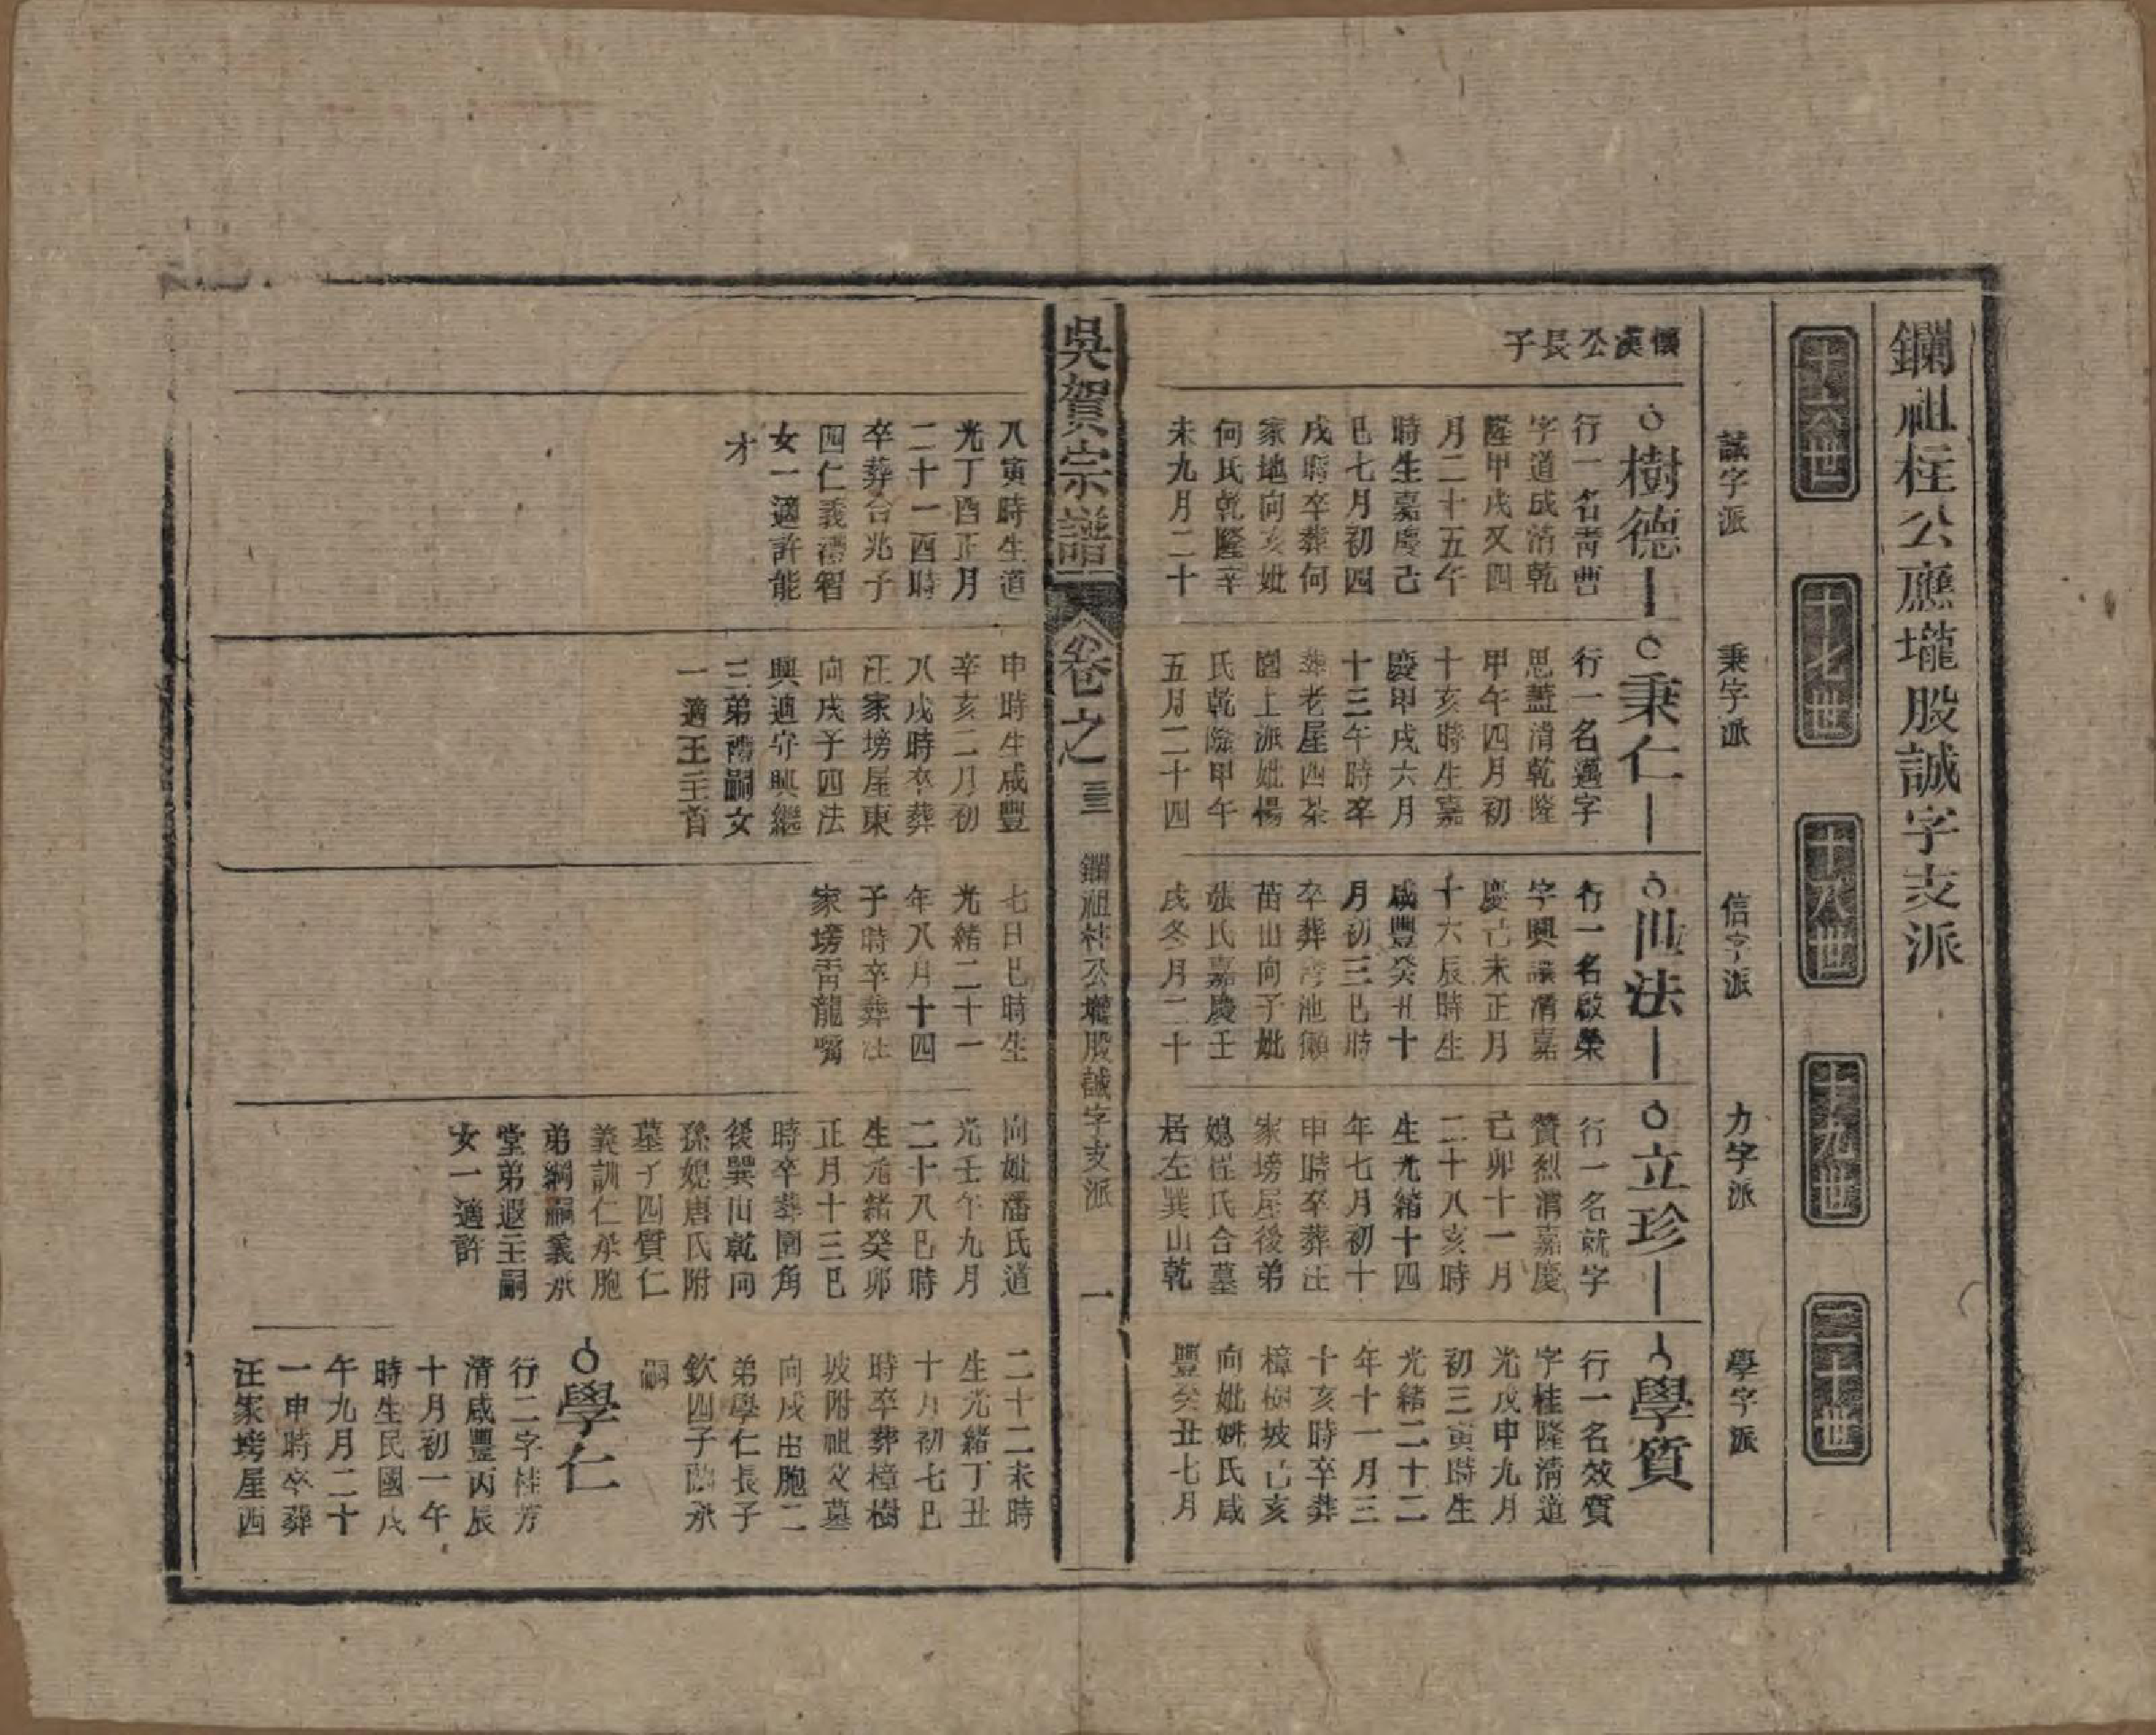 鑭祖柱公應壠股誠字支派
十六世
十七世
十八世
十九世
二十世
誠字派
秉字派
信字派
力字派
學字派
懷漠公長子
樹德
行一名靑曹
字道成淸乾
隆甲戌又四
月二十五午
時生嘉慶己
巳七月初四
戌時卒葬何
家地向亥妣
何氏乾隆辛
未九月二十
秉仁
行一名邁字
思藎清乾隆
甲午四月初
十亥時生嘉
慶甲戌六月
十三午時卒
葬老屋西茶
園上派妣楊
氏乾隆甲午
五月二十四
世法
行一名啟榮
字興讓清嘉
慶己未正月
十六辰時生
咸豐癸丑十
月初三巳時
卒葬湾池獺
苗山向子妣
張氏嘉慶壬
戌冬月二十
立珍
行一名就字
贊烈淸嘉慶
己卯十一月
二十八亥時
生光緒十四
年七月初十
申時卒葬汪
家塝屋後弟
媳崔氏合墓
居左巽山乾
學質
行一名效質
字桂隆清道
光戊申九月
初三寅時生
光緒二十二
年十一月三
十亥時卒葬
樟樹坡己亥
向妣姚氏咸
豐癸丑七月
吳賀宗譜
卷之三
鑭祖柱公壠股誠字支派
一
八寅時生道
光丁酉正月
二十一酉時
卒葬合兆子
四仁義禮智
女一適許能
才
申時生咸豐
辛亥二月初
八戌時卒葬
汪家塝屋東
向戌子四法
興適守興繼
三弟禮嗣女
一適王主首
七日巳時生
光緒二十一
年八月十四
子時卒葬汪
家塝靑龍嘴
向妣潘氏道
光壬午九月
二十八巳時
生光緒癸卯
正月十三巳
時卒葬園角
後巽山乾向
孫媳唐氏附
墓子四質仁
義訓仁承胞
弟綱嗣義承
堂弟遐主嗣
女一適許
二十二未時
生光緒丁丑
十月初七巳
時卒葬樟樹
坡附祖父墓
向戌出胞二
弟學仁長子
欽四子承
嗣
學仁
行二字桂芳
清咸豐丙辰
十月初一午
時生民國戊
午九月二十
一申時卒葬
汪家塝屋西